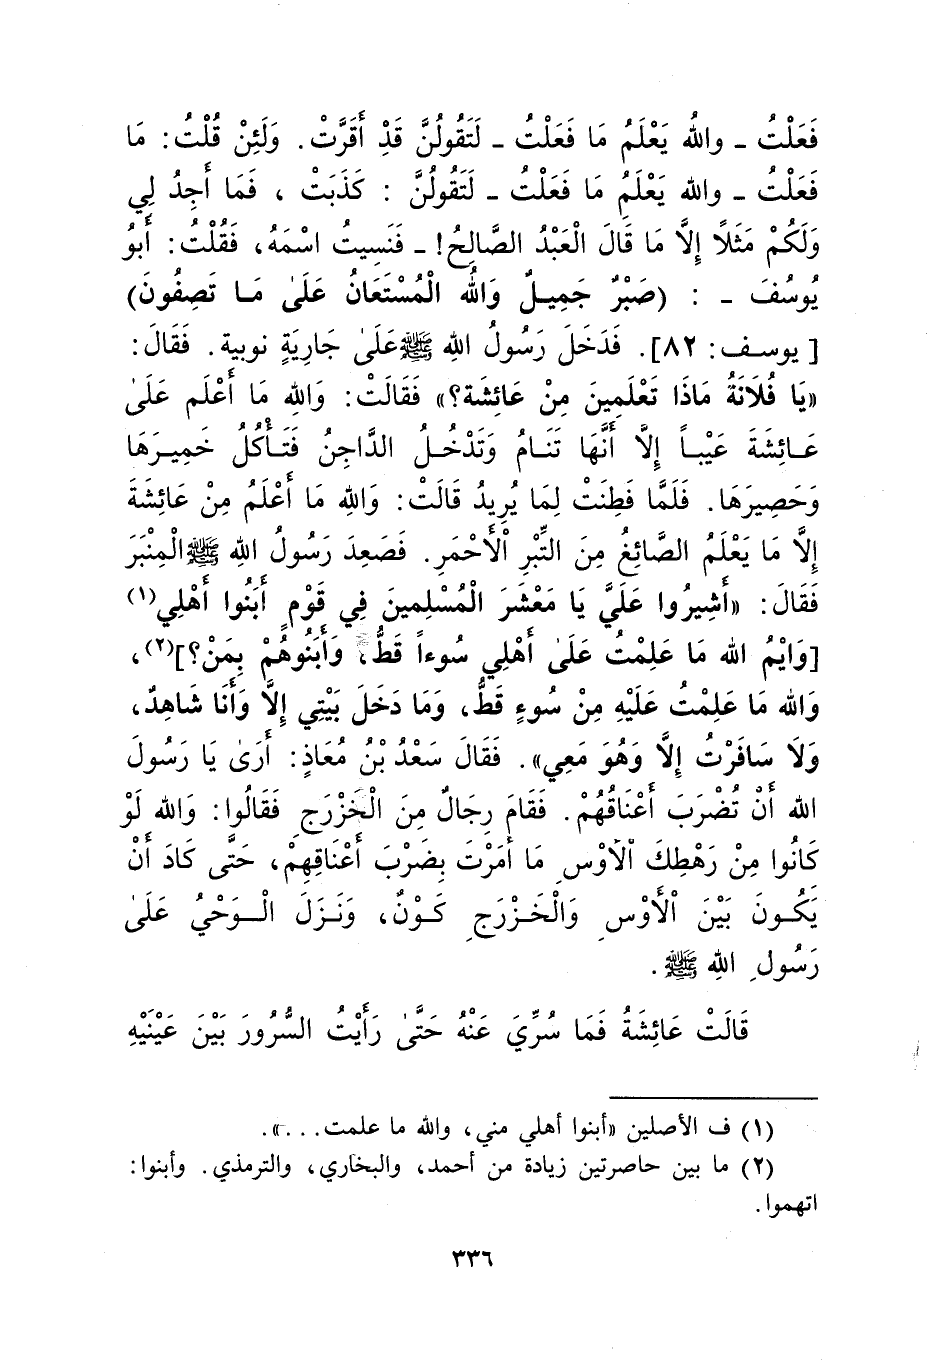 فَعَلْتُ ـ واللهُ يَعْلَمُ مَا فَعَلْتُ ـ لَتَقُولُنَّ قَدْ أَقَرَّتْ. وَلَئِنْ قُلْتُ: مَا
فَعَلْتُ ـ والله يَعْلَمُ مَا فَعَلْتُ ـ لَتَقُولُنَّ : كَذَبَتْ ، فَمَا أَجِدُ لِي
وَلَكُمْ مَثَلاً إِلَّا مَا قَالَ الْعَبْدُ الصَّالِحُ! ـ فَنَسِيتُ اسْمَهُ، فَقُلْتُ: أَبُو
يُوسُفَ ـ : (صَبْرٌ جَمِيلٌ وَاللهُ الْمُسْتَعَانُ عَلَىٰ مَا تَصِفُونَ)
[يوسف: ٨٢]. فَدَخَلَ رَسُولُ اللهِ ﷺ عَلَىٰ جَارِيَةٍ نوبية. فَقَالَ:
«يَا فُلَانَةُ مَاذَا تَعْلَمِينَ مِنْ عَائِشَة؟» فَقَالَتْ: وَاللهِ مَا أَعْلَم عَلَىٰ
عَائِشَةَ عَيْباً إِلَّا أَنَّهَا تَنَامُ وَتَدْخُلُ الدَّاجِنُ فَتَأْكُلُ خَمِيرَهَا
وَحَصِيرَهَا. فَلَمَّا فَطِنَتْ لِمَا يُرِيدُ قَالَتْ: وَاللهِ مَا أَعْلَمُ مِنْ عَائِشَةَ
إِلَّا مَا يَعْلَمُ الصَّائِغُ مِنَ التِّبْرِ الْأَحْمَرِ. فَصَعِدَ رَسُولُ اللهِ ﷺ الْمِنْبَرَ
فَقَالَ: «أَشِيرُوا عَلَيَّ يَا مَعْشَرَ الْمُسْلِمِينَ فِي قَوْمٍ أَبَنُوا أَهْلِي(١)
[وَايْمُ الله مَا عَلِمْتُ عَلَىٰ أَهْلِي سُوءاً قَطُّ، وَأَبَنُوهُمْ بِمَنْ؟](٢)،
وَالله مَا عَلِمْتُ عَلَيْهِ مِنْ سُوءٍ قَطُّ، وَمَا دَخَلَ بَيْتِي إِلَّا وَأَنَا شَاهِدٌ،
وَلَا سَافَرْتُ إِلَّا وَهُوَ مَعِي». فَقَالَ سَعْدُ بْنُ مُعَاذٍ: أَرَىٰ يَا رَسُولَ
الله أَنْ تُضْرَبَ أَعْنَاقُهُمْ. فَقَامَ رِجَالٌ مِنَ الْخَزْرَجِ فَقَالُوا: وَالله لَوْ
كَانُوا مِنْ رَهْطِكَ الْأَوْسِ مَا أَمَرْتَ بِضَرْبِ أَعْنَاقِهِمْ، حَتَّى كَادَ أَنْ
يَكُونَ بَيْنَ الْأَوْسِ وَالْخَزْرَجِ كَوْنٌ، وَنَزَلَ الْوَحْيُ عَلَىٰ
رَسُولِ اللهِ ﷺ.
قَالَتْ عَائِشَةُ فَمَا سُرِّيَ عَنْهُ حَتَّىٰ رَأَيْتُ السُّرُورَ بَيْنَ عَيْنَيْهِ
(١) ف الأصلين «أبنوا أهلي مني، والله ما علمت...».
(٢) ما بين حاصرتين زيادة من أحمد، والبخاري، والترمذي. وأبنوا:
اتهموا.
٣٣٦